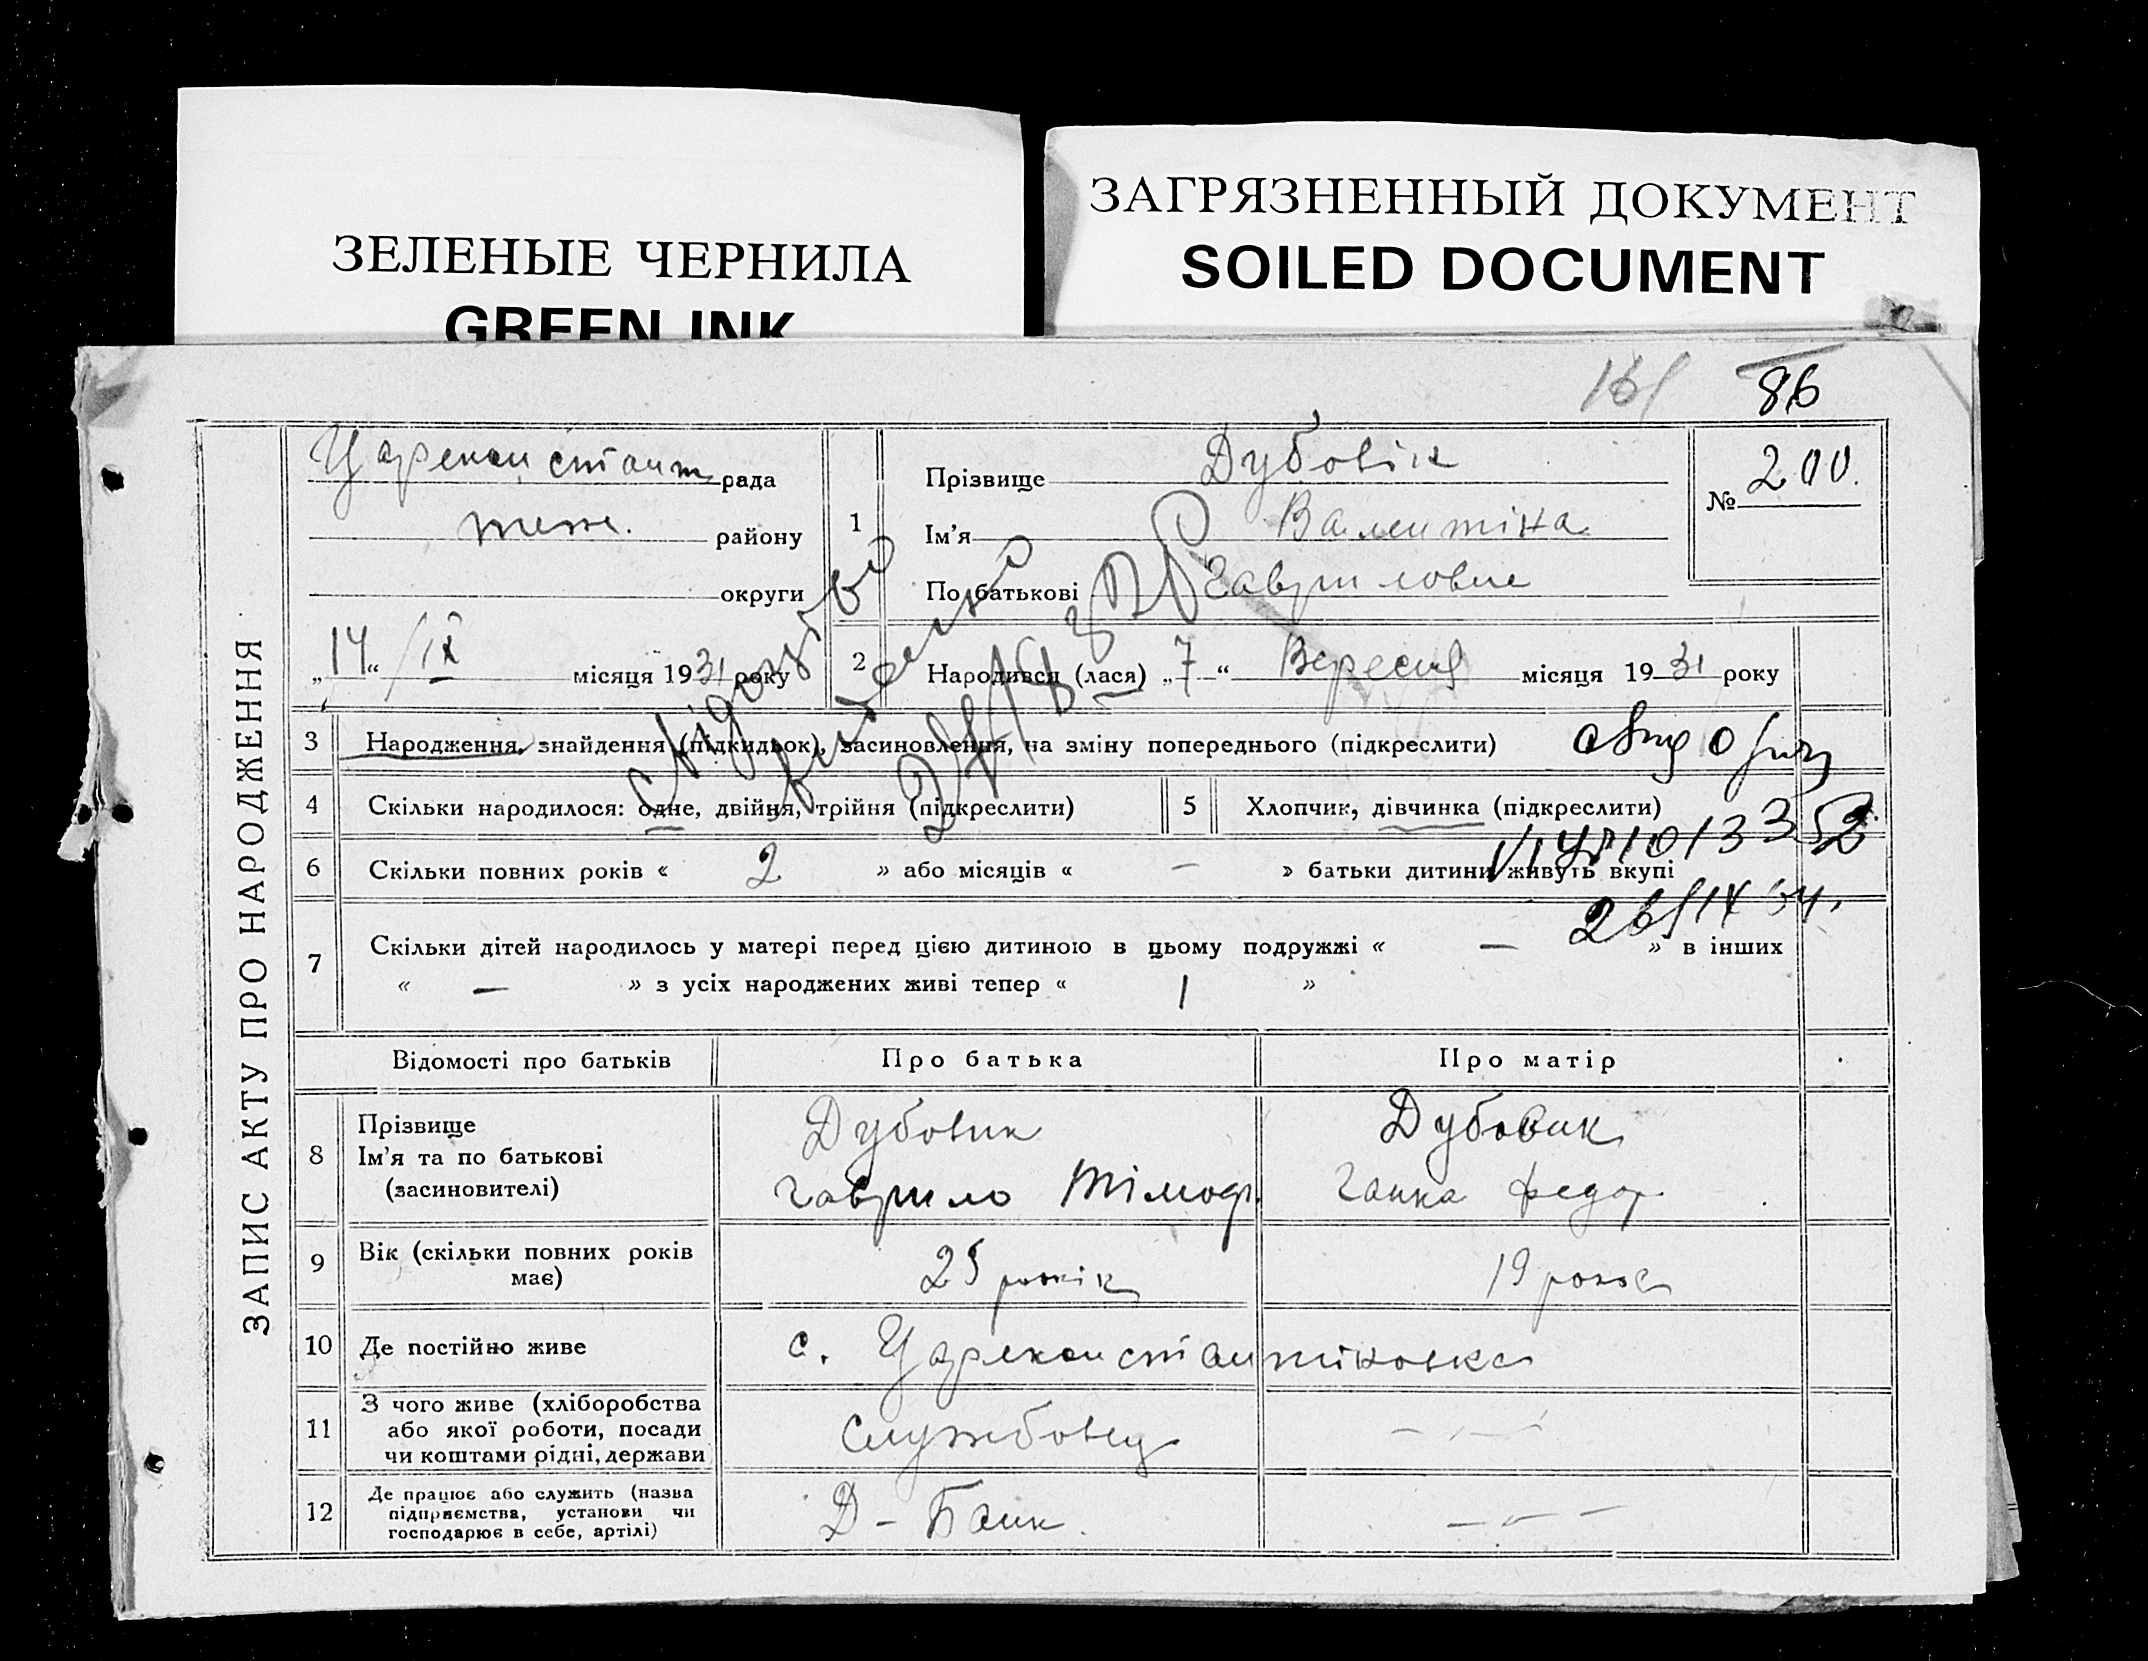 ЗЕЛЕНЫЕ ЧЕРНИЛА
GREEN INK
ЗАГРЯЗНЕННЫЙ ДОКУМЕНТ
SOILED DOCUMENT
86
ЗАПИС АКТУ ПРО НАРОДЖЕННЯ
Цареконстант рада
теж. району
округи
„14“ /IX місяця 1931 року
1
Прізвище Дубовік
Ім'я Валентіна
По батькові Гавриловне
№ 200.
2
Народився (лася) „7“ Вересня місяця 1931 року
Свідоцтво
видано
3 Народження, знайдення (підкидьок), засиновлення, на зміну попереднього (підкреслити)
4 Скільки народилося: одне, двійня, трійня (підкреслити)
5 Хлопчик, дівчинка (підкреслити)
6 Скільки повних років « 2 » або місяців « — » батьки дитини живуть вкупі
7 Скільки дітей народилось у матері перед цією дитиною в цьому подружжі « — » в інших
« — » з усіх народжених живі тепер « 1 »
Відомості про батьків Про батька Про матір
8 Прізвище
Ім'я та по батькові
(засиновителі)
Дубовик
Гаврило Тімоф.
Дубовик
Ганка Федор
9 Вік (скільки повних років
має)
25 років
19 років
10 Де постійно живе с. Цареконстантіновка
11 З чого живе (хліборобства
або якої роботи, посади
чи коштами рідні, держави
Службовец
— „ —
12 Де працює або служить (назва
підприємства, установи чи
господарює в себе, артілі)
Д - Банк.
— „ —